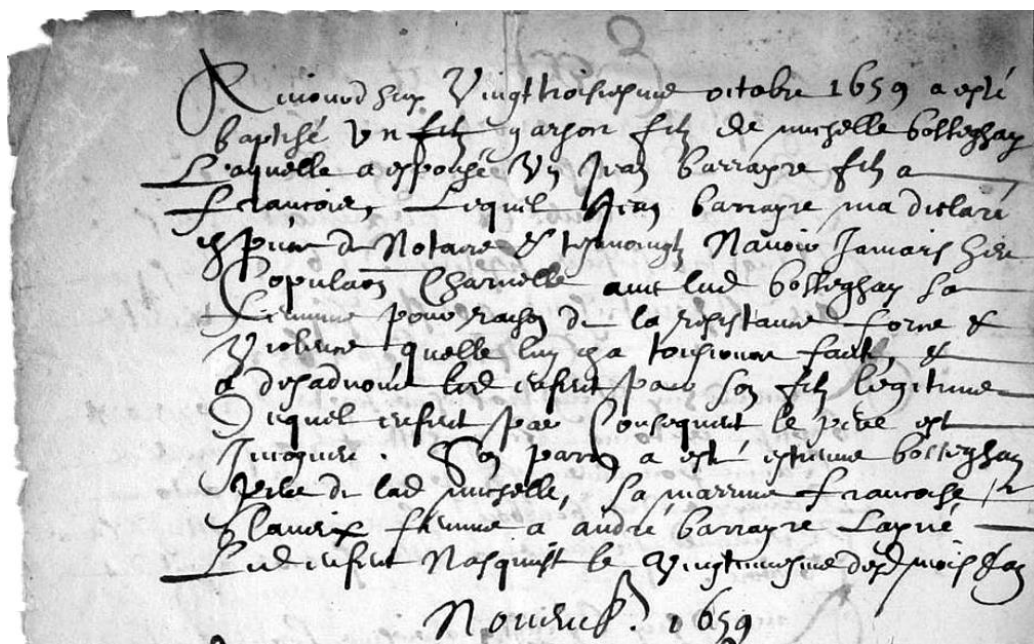 vingttroisiesme octobre 1659 a esté
baptisé un filz garson filz de michelle bolleghay
Laquelle a espousé un Jean barrayre filz a
francois, Lequel Jean barrayre ma declaré
en p[...] de Notaire & tesmoingz Navoir Jamais heu
Copulaon Charnelle avec lad bolleghay sa
femme pour raison de la resistance force &
Violence quelle luy en a tousiours faict, &
a desadvoué led enfent par son filz légitime
Duquel enfent par Consequent le père est
Incogneu. Son parin a esté estienne bolleghay
père de lad michelle, sa marrine francoise
femme a andré barrayre Layné
Led enfent Nasquist le vingtuniesme desd mois & an
Novemb. 1659